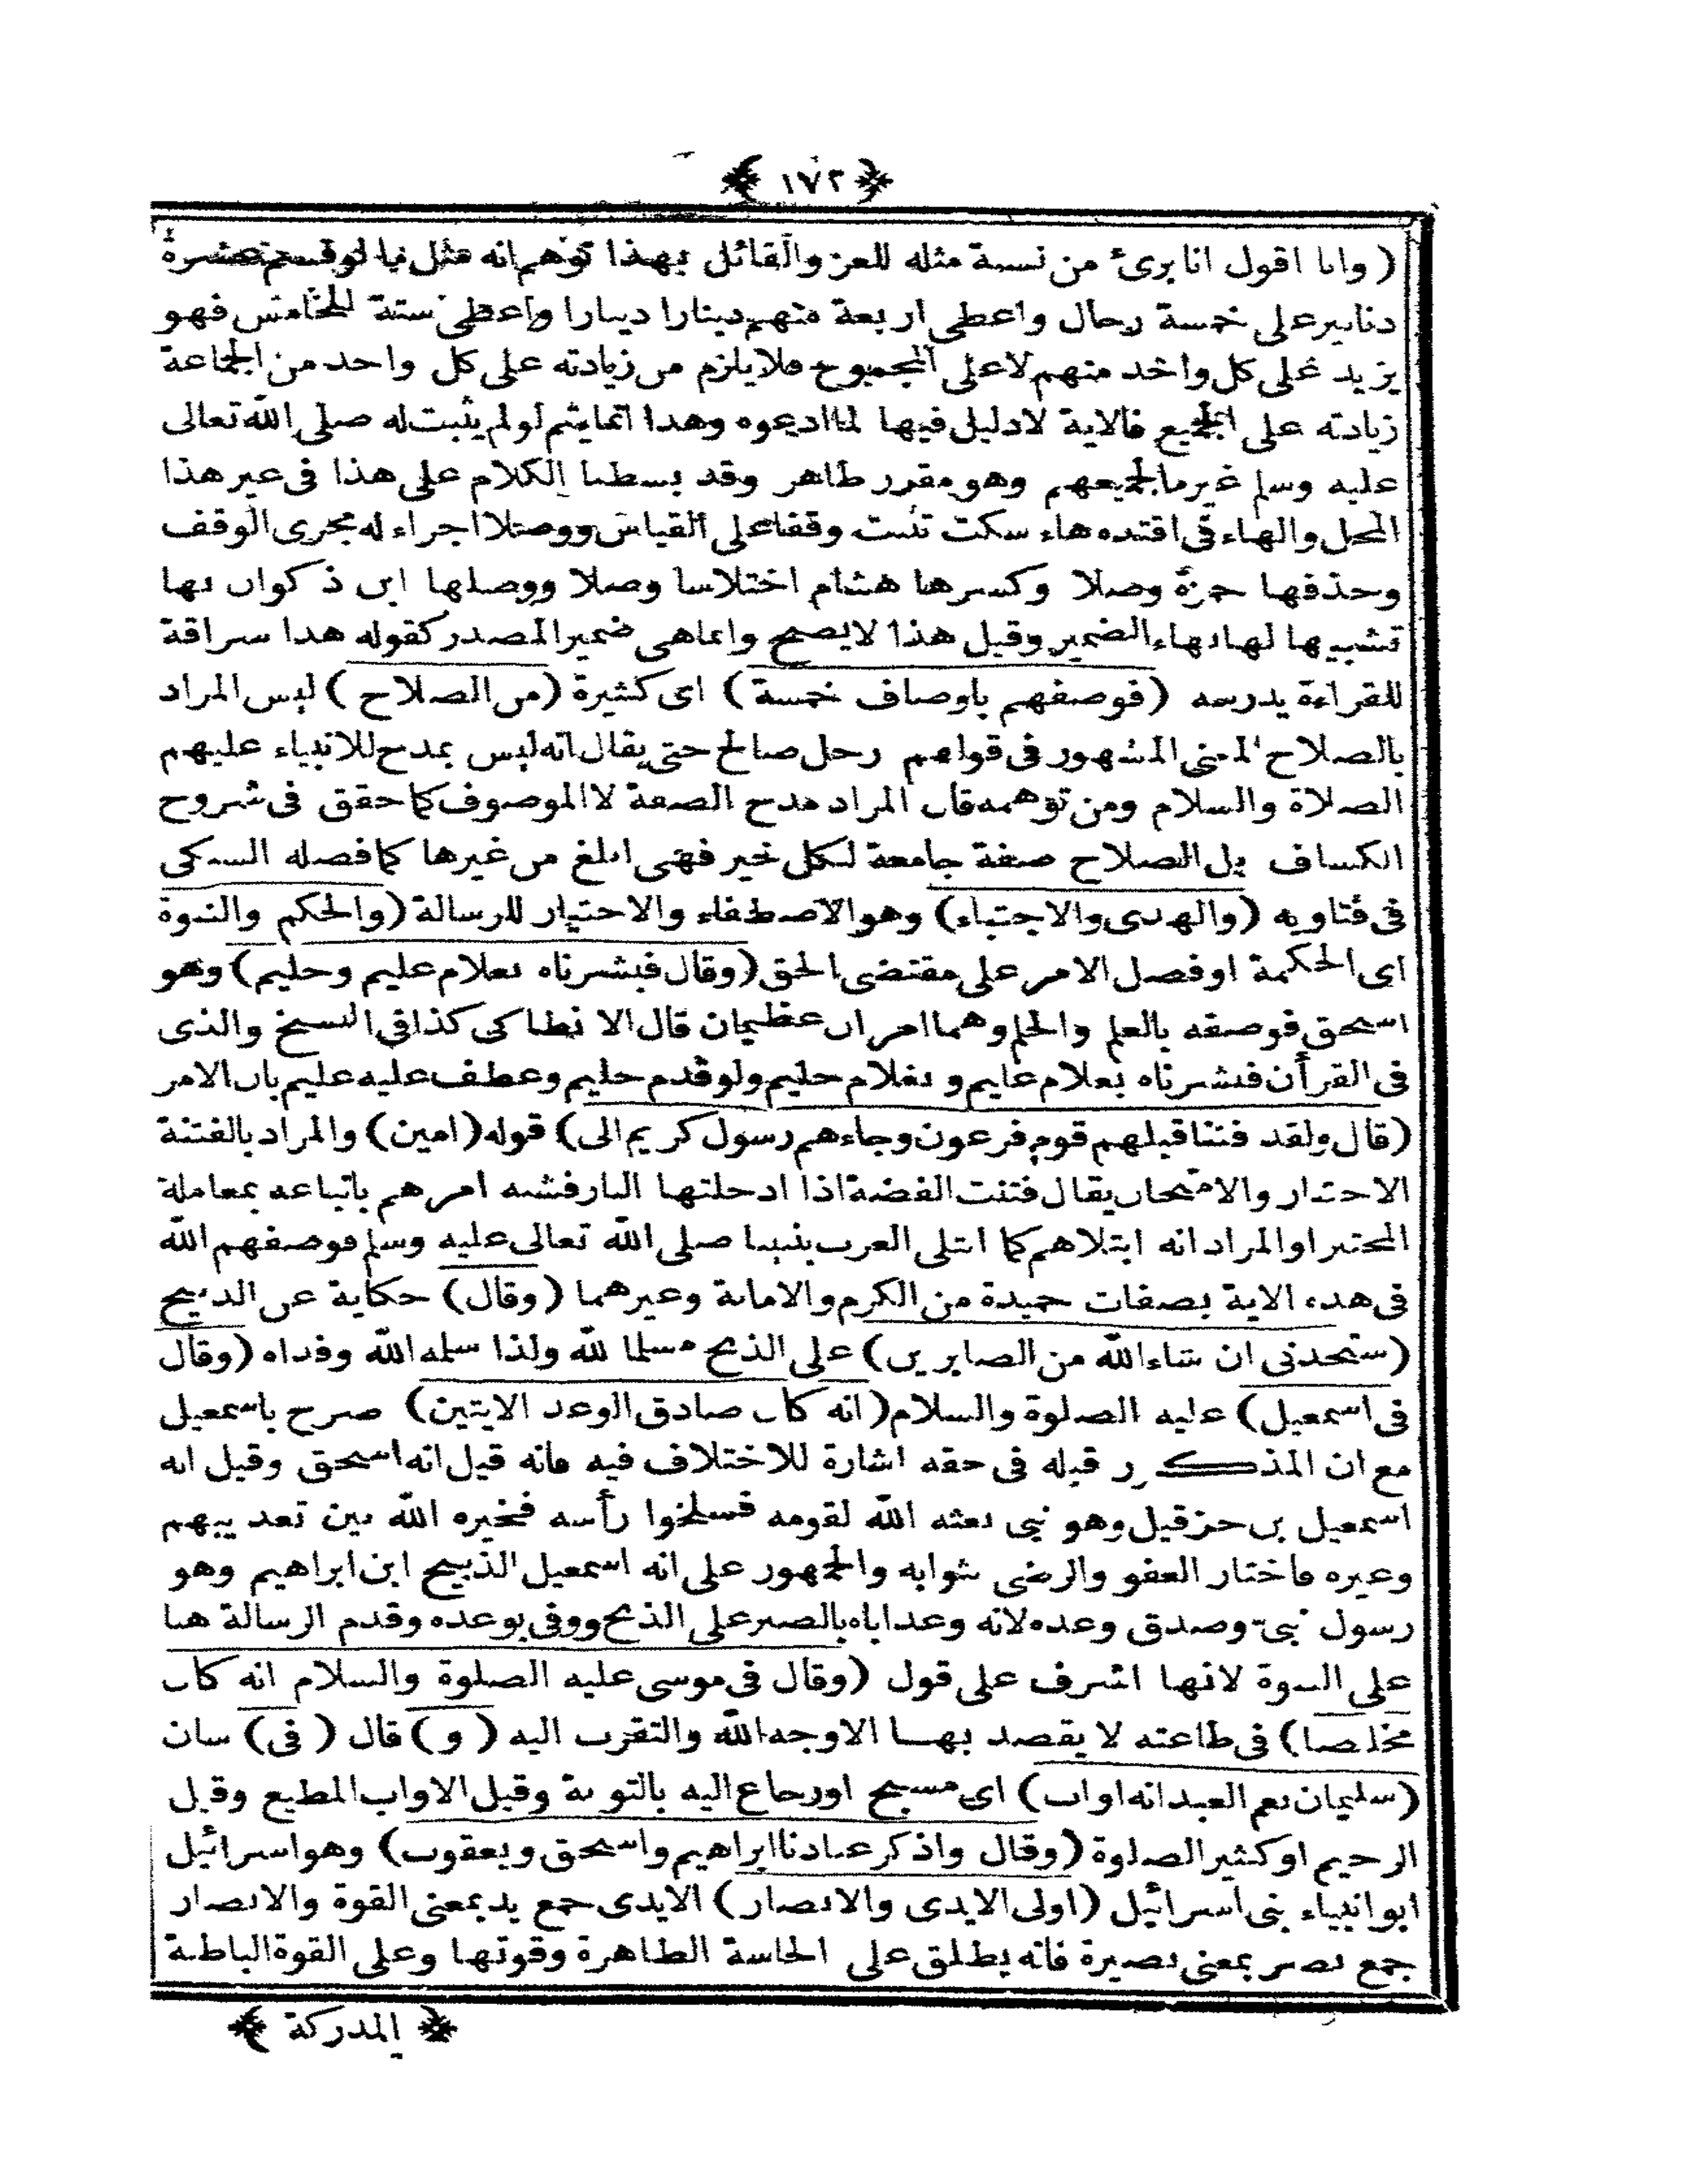 ١٧٢
( وانا اقول انا برئ من نسبة مثله للعز والقائل بهذا توهم انه مثل ما لو قسم عشرة
دنانير على خمسة رجال واعطى اربعة منهم دينارا دينارا واعطى ستة للخامس فهو
يزيد على كل واحد منهم لا على المجموع فلا يلزم من زيادته على كل واحد من الجماعة
زيادته على الجميع فالاية لا دليل فيها لما ادعوه وهذا انما يتم لو لم يثبت له صلى الله تعالى
عليه وسلم غير ما لجميعهم وهو مقرر ظاهر وقد بسطنا الكلام على هذا فى غير هذا
المحل والهاء فى اقتده هاء سكت تثبت وقفا على القياس ووصلا اجراء له مجرى الوقف
وحذفها حمزة وصلا وكسرها هشام اختلاسا وصلا ووصلها ابن ذكوان بها
تشبيها لها بهاء الضمير وقيل هذا لا يصح وانما هى ضمير المصدر كقوله هذا سراقة
للقراءة يدرسه (فوصفهم باوصاف خمسة) اى كثيرة (من الصلاح) ليس المراد
بالصلاح المعنى المشهور فى قولهم رجل صالح حتى يقال انه ليس بمدح للانبياء عليهم
الصلاة والسلام ومن توهمه قال المراد مدح الصفة لا الموصوف كما حقق فى شروح
الكشاف بل الصلاح صفة جامعة لكل خير فهى ابلغ من غيرها كما فصله السبكى
فى فتاويه (والهدى والاجتباء) وهو الاصطفاء والاختيار للرسالة (والحكم والنبوة
اى الحكمة او فصل الامر على مقتضى الحق (وقال فبشرناه بغلام عليم وحليم) وهو
اسحق فوصفه بالعلم والحلم وهما امران عظيمان قال الانطاكى كذا فى النسخ والذى
فى القرأن فبشرناه بغلام عليم وبغلام حليم ولو قدم حليم وعطف عليه عليم بان الامر
(قال ولقد فتنا قبلهم قوم فرعون وجاءهم رسول كريم الى) قوله (امين) والمراد بالفتنة
الاختبار والامتحان يقال فتنت الفضة اذا ادخلتها النار فشبه امرهم باتباعه بمعاملة
المختبر او المراد انه ابتلاهم كما ابتلى العرب بنبينا صلى الله تعالى عليه وسلم فوصفهم الله
فى هذه الاية بصفات حميدة من الكرم والامانة وغيرهما (وقال) حكاية عن الذبيح
(ستجدنى ان شاء الله من الصابرين) على الذبح مسلما لله ولذا سلمه الله وفداه (وقال
فى اسمعيل) عليه الصلوة والسلام (انه كان صادق الوعد الايتين) صرح باسمعيل
مع ان المذكور قبله فى حقه اشارة للاختلاف فيه فانه قيل انه اسحق وقيل انه
اسمعيل بن حزقيل وهو نبى بعثه الله لقومه فسلخوا رأسه فخيره الله بين تعذيبهم
وغيره فاختار العفو والرضى بثوابه والجمهور على انه اسمعيل الذبيح ابن ابراهيم وهو
رسول نبىّ وصدق وعده لانه وعد اباه بالصبر على الذبح ووفى بوعده وقدم الرسالة هنا
على النبوة لانها اشرف على قول (وقال فى موسى عليه الصلوة والسلام انه كان
مخلصا) فى طاعته لا يقصد بهـا الا وجه الله والتقرب اليه (و) قال (فى) شان
(سليمان نعم العبد انه اواب) اى مسبح او رجاع اليه بالتوبة وقيل الاواب المطيع وقيل
الرحيم او كثير الصلوة (وقال واذكر عبادنا ابراهيم واسحق ويعقوب) وهو اسرائيل
ابو انبياء بنى اسرائيل (اولى الايدى والابصار) الايدى جمع يد بمعنى القوة والابصار
جمع بصر بمعنى بصيرة فانه يطلق على الحاسة الظاهرة وقوتها وعلى القوة الباطنة
المدركة